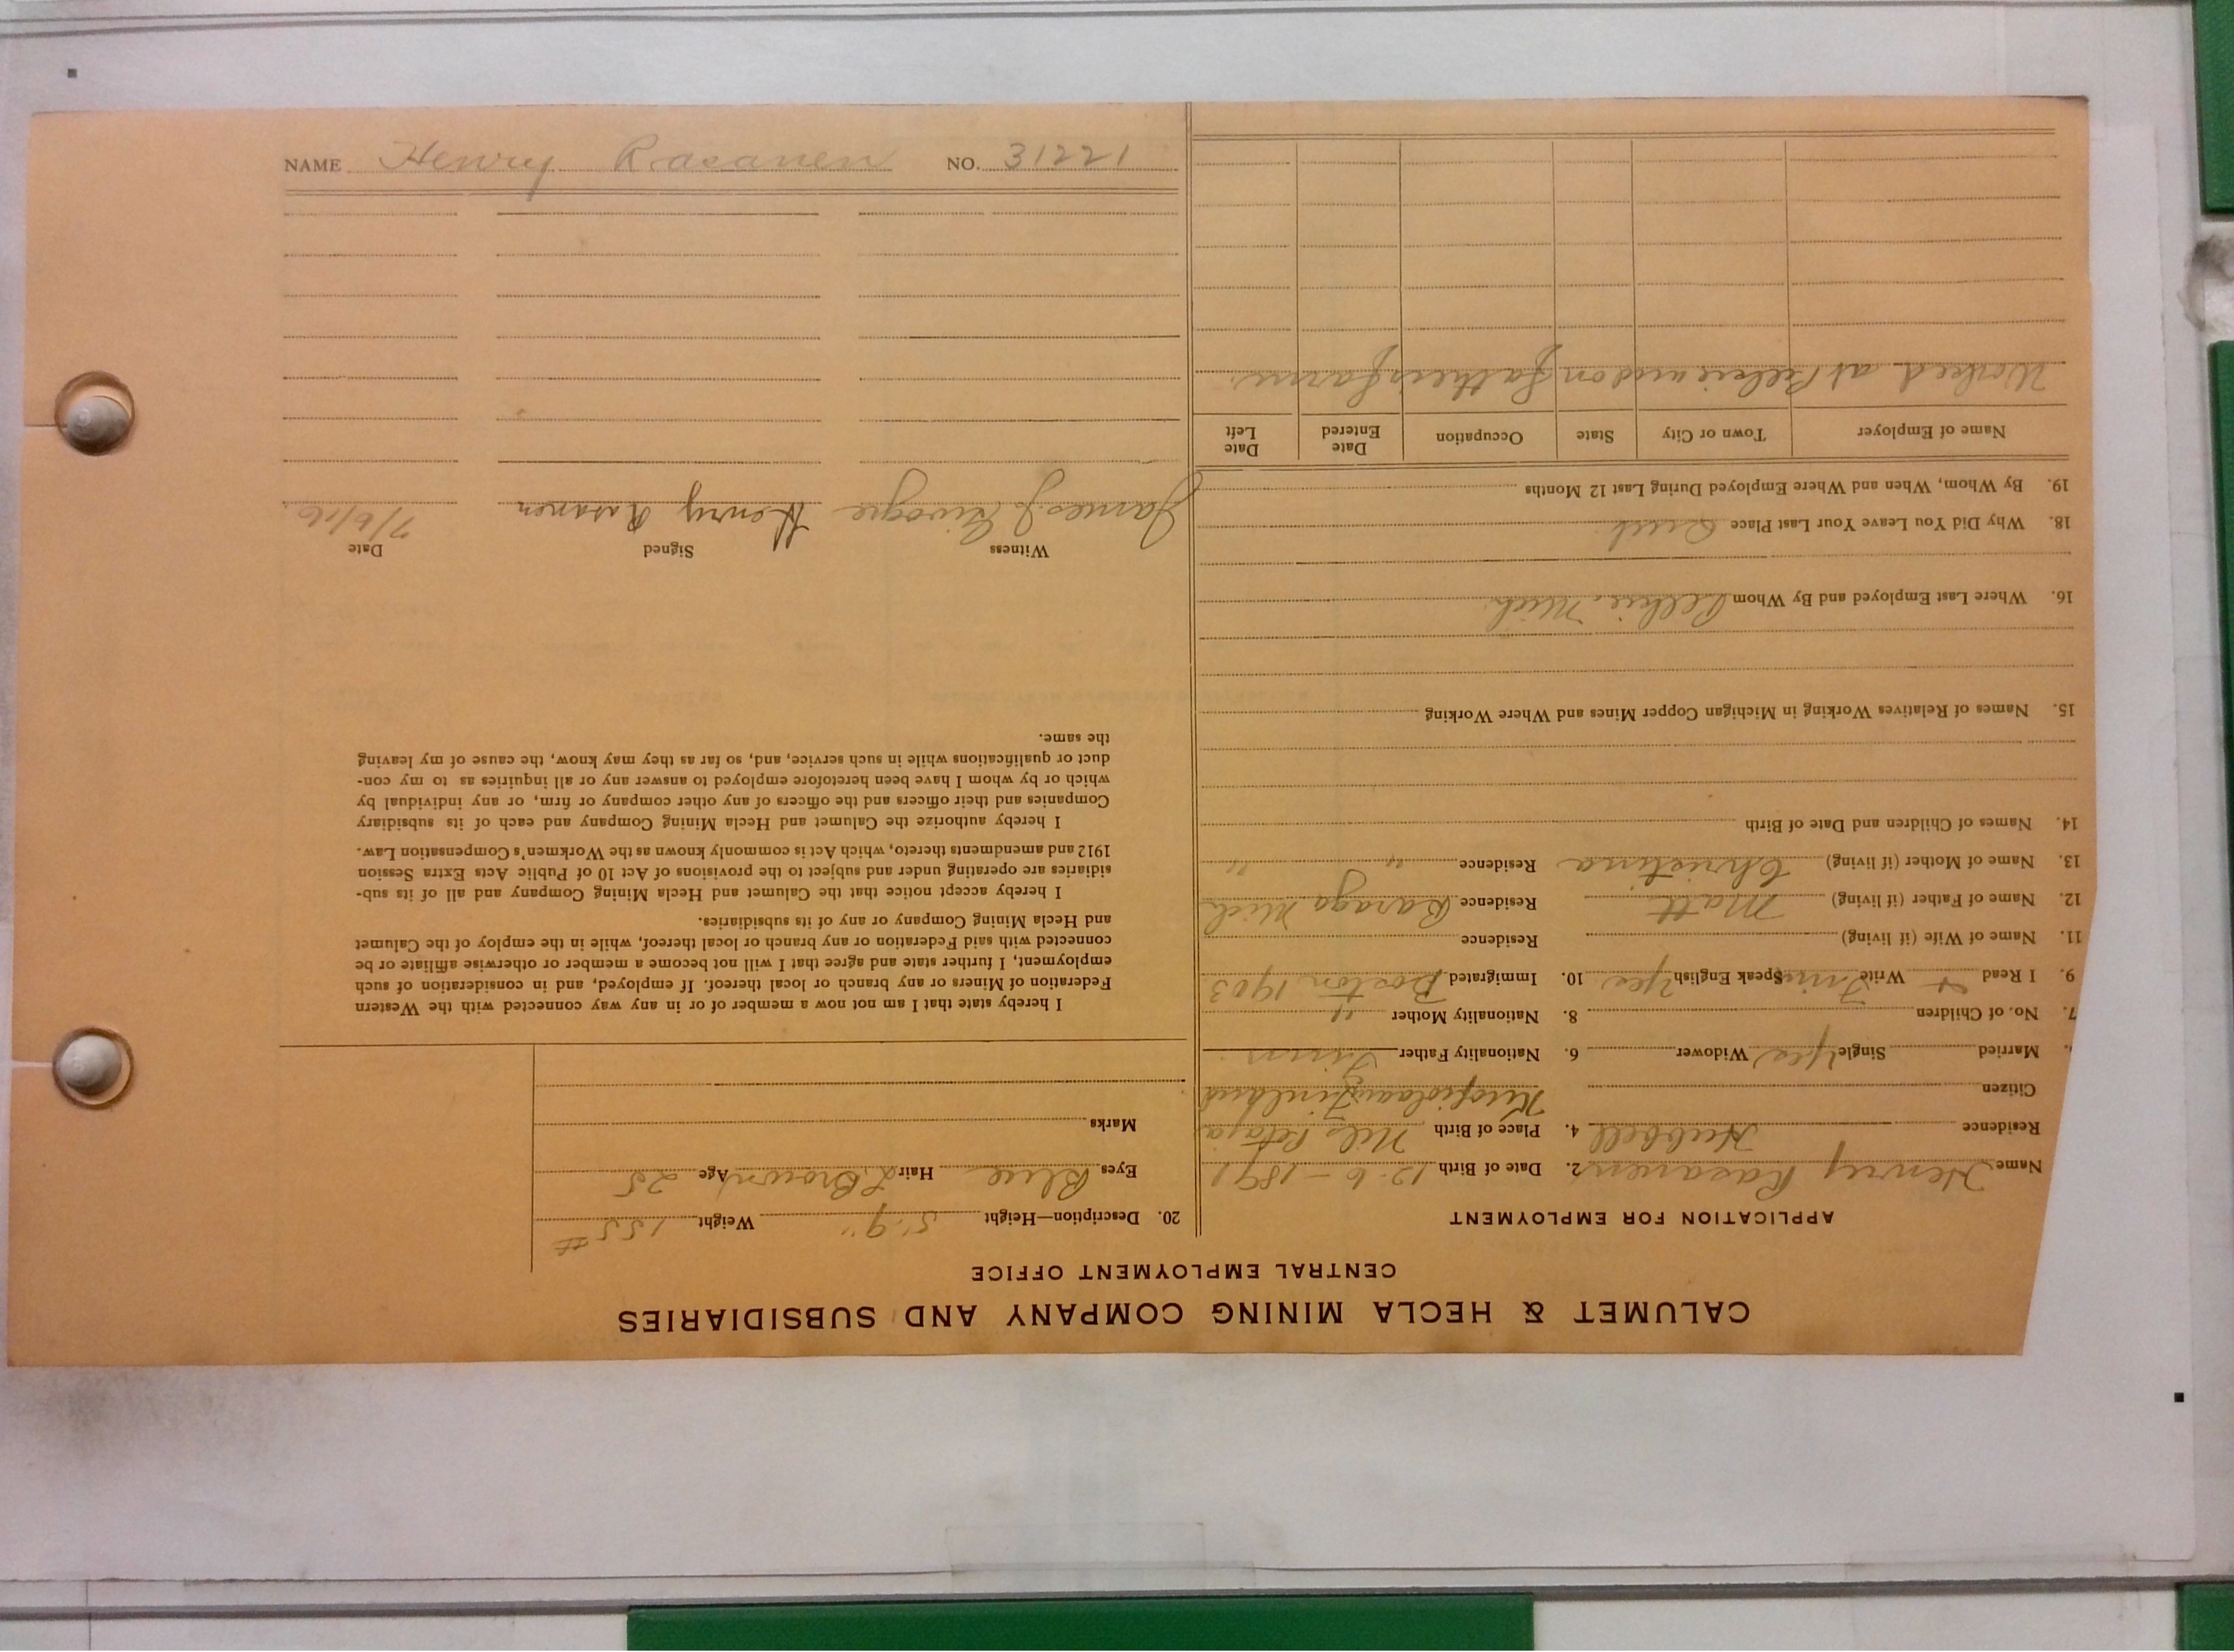 CALUMET & HECLA MINING COMPANY AND SUBSIDIARIES
CENTRAL EMPLOYMENT OFFICE
APPLICATION FOR EMPLOYMENT
Name Henry Rasanen 2. Date of Birth 12-6-1891
Residence Hubbell 4. Place of Birth
Citizen Finland
Married Single Yes Widower 6. Nationality Father Finn
7. No. of Children 8. Nationality Mother "
9. I Read + Write Finn Speak English Yes 10. Immigrated Boston 1903
11. Name of Wife (if living) Residence
12. Name of Father (if living) Matt Residence Baraga Mich
13. Name of Mother (if living) Christina Residence " "
14. Names of Children and Date of Birth
15. Names of Relatives Working in Michigan Copper Mines and Where Working
16. Where Last Employed and By Whom Pelkie, Mich.
18. Why Did You Leave Your Last Place Quit
19. By Whom, When and Where Employed During Last 12 Months
Name of Employer Town or City State Occupation Date Entered Date Left
Worked at Pelkie and on fathers farm.
20. Description—Height 5' 9" Weight 155#
Eyes Blue Hair L. Brown Age 25
Marks
I hereby state that I am not now a member of or in any way connected with the Western
Federation of Miners or any branch or local thereof. If employed, and in consideration of such
employment, I further state and agree that I will not become a member or otherwise affiliate or be
connected with said Federation or any branch or local thereof, while in the employ of the Calumet
and Hecla Mining Company or any of its subsidiaries.
I hereby accept notice that the Calumet and Hecla Mining Company and all of its sub-
sidiaries are operating under and subject to the provisions of Act 10 of Public Acts Extra Session
1912 and amendments thereto, which Act is commonly known as the Workmen's Compensation Law.
I hereby authorize the Calumet and Hecla Mining Company and each of its subsidiary
Companies and their officers and the officers of any other company or firm, or any individual by
which or by whom I have been heretofore employed to answer any or all inquiries as to my con-
duct or qualifications while in such service, and, so far as they may know, the cause of my leaving
the same.
Witness Signed Date
James J Henry Rasanen 7/6/16
NAME Henry Rasanen NO. 31221